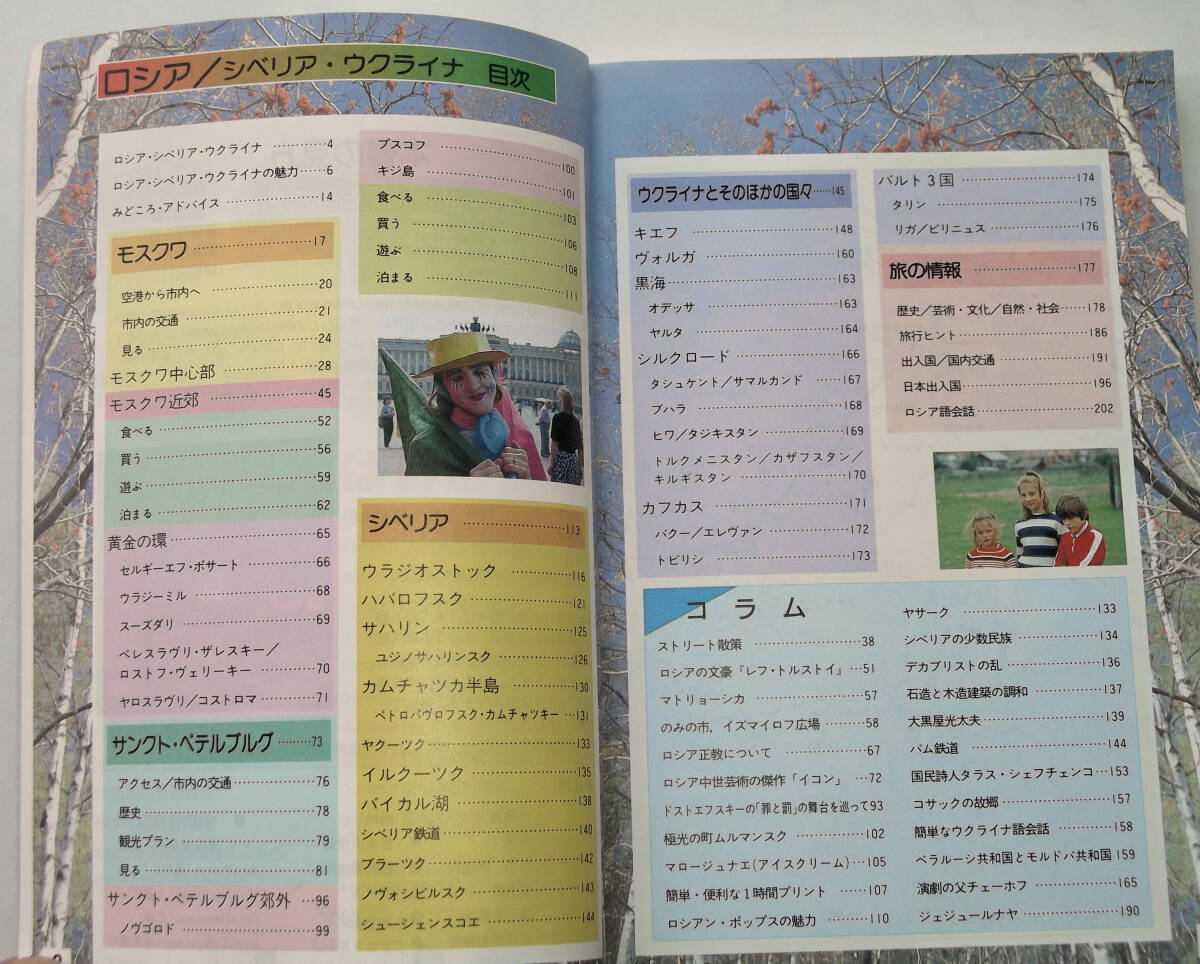 ロシア／シベリア・ウクライナ 目次
ロシア・シベリア・ウクライナ …………4
ロシア・シベリア・ウクライナの魅力……6
みどころ・アドバイス ……………14
モスクワ ……………………17
空港から市内へ ……………20
市内の交通 ……………21
見る ……………24
モスクワ中心部 ……………28
モスクワ近郊 ……………45
食べる ……………52
買う ……………56
遊ぶ ……………59
泊まる ……………62
黄金の環 ……………65
セルギーエフ・ポサート ……………66
ウラジーミル ……………68
スーズダリ ……………69
ペレスラヴリ・ザレスキー／
ロストフ・ヴェリーキー ……………70
ヤロスラヴリ／コストロマ ……………71
サンクト・ペテルブルグ ………73
アクセス／市内の交通 ……………76
歴史 ……………78
観光プラン ……………79
見る ……………81
サンクト・ペテルブルグ郊外 ……96
ノヴゴロド ……………99
プスコフ ……………100
キジ島 ……………101
食べる ……………103
買う ……………106
遊ぶ ……………108
泊まる ……………111
シベリア ……………113
ウラジオストック ……………116
ハバロフスク ……………121
サハリン ……………125
ユジノサハリンスク ……………126
カムチャツカ半島 ……………130
ペトロパヴロフスク・カムチャツキー …131
ヤクーツク ……………133
イルクーツク ……………135
バイカル湖 ……………138
シベリア鉄道 ……………140
ブラーツク ……………142
ノヴォシビルスク ……………143
シューシェンスコエ ……………144
ウクライナとそのほかの国々 ……145
キエフ ……………148
ヴォルガ ……………160
黒海 ……………163
オデッサ ……………163
ヤルタ ……………164
シルクロード ……………166
タシュケント／サマルカンド ……167
ブハラ ……………168
ヒワ／タジキスタン ……………169
トルクメニスタン／カザフスタン／
キルギスタン ……………170
カフカス ……………171
バクー／エレヴァン ……………172
トビリシ ……………173
バルト3国 ……………174
タリン ……………175
リガ／ビリニュス ……………176
旅の情報 ……………177
歴史／芸術・文化／自然・社会 ……178
旅行ヒント ……………186
出入国／国内交通 ……………191
日本出入国 ……………196
ロシア語会話 ……………202
コラム
ストリート散策 ……………38
ロシアの文豪『レフ・トルストイ』…51
マトリョーシカ ……………57
のみの市，イズマイロフ広場 ………58
ロシア正教について ……………67
ロシア中世芸術の傑作「イコン」 …72
ドストエフスキーの「罪と罰」の舞台を巡って93
極光の町ムルマンスク ……………102
マロージュナエ(アイスクリーム)…105
簡単・便利な1時間プリント ……107
ロシアン・ポップスの魅力 ………110
ヤサーク ……………133
シベリアの少数民族 ……………134
デカブリストの乱 ……………136
石造と木造建築の調和 ……………137
大黒屋光太夫 ……………139
バム鉄道 ……………144
国民詩人タラス・シェフチェンコ…153
コサックの故郷 ……………157
簡単なウクライナ語会話 …………158
ベラルーシ共和国とモルドバ共和国 159
演劇の父チェーホフ ……………165
ジェジュールナヤ ……………190